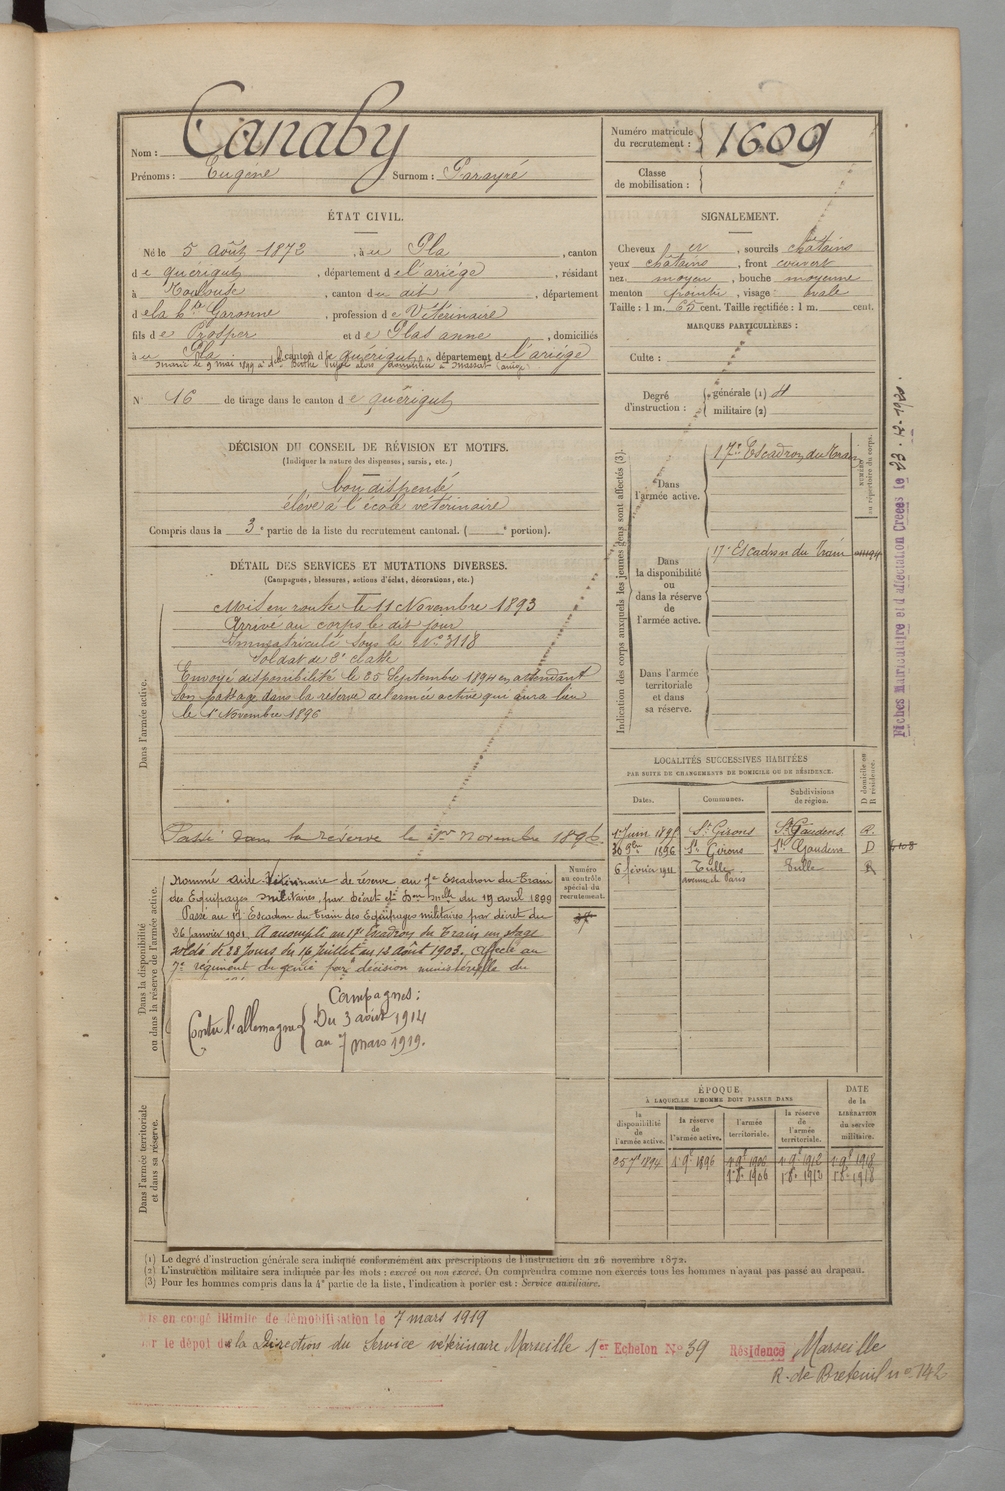 Nom : Canaby
Prénoms : Eugène Surnom : Parayré
Numéro matricule
du recrutement : 1609
Classe
de mobilisation :
ÉTAT CIVIL.
Né le 5 Août 1872, à u Pla, canton
d e quérigut, département d e l'ariége, résidant
à Toulouse, canton d u dit, département
d e la hte Garonne, profession d e Vétérinaire
fils d e Prosper et d e Glas anne, domiciliés
à u Pla, canton d e quérigut, département d e l'ariége
Marié le 9 mai 1899 à dlle Berthe Pujol alors domiciliée à Massat (ariège)
N° 16 de tirage dans le canton d e quérigut
SIGNALEMENT.
Cheveux et, sourcils châtains
yeux châtains, front couvert
nez moyen, bouche moyenne
menton pointu, visage ovale
Taille : 1 m. 65 cent. Taille rectifiée : 1 m. cent.
MARQUES PARTICULIÈRES :
Culte :
Degré
d'instruction :
générale (1) 4
militaire (2)
DÉCISION DU CONSEIL DE RÉVISION ET MOTIFS.
(Indiquer la nature des dispenses, sursis, etc.)
bon dispensé
élève à l'école vétérinaire
Compris dans la 3e partie de la liste du recrutement cantonal. ( e portion).
DÉTAIL DES SERVICES ET MUTATIONS DIVERSES.
(Campagnes, blessures, actions d'éclat, décorations, etc.)
Dans l'armée active.
Mis en route le 11 Novembre 1893
Arrivé au corps le dit jour
Immatriculé sous le No 3118
Soldat de 2e classe
Envoyé disponibilité le 25 Septembre 1894 en attendant
son passage dans la réserve de l'armée active qui aura lieu
le 1er Novembre 1896
Passé dans la réserve le 1er novembre 1896.
Dans la disponibilité
ou dans la réserve de l'armée active.
Nommé aide-vétérinaire de réserve au 7e Escadron du Train
des Equipages militaires, par décret du 19 avril 1899
Passé au 17e Escadron du Train des Equipages militaires par décret du
26 janvier 1901. A accompli au 17e Escadron du Train un stage
soldé de 28 jours du 16 Juillet au 12 Août 1903. Affecté au
7e régiment du génie par décision ministérielle du
Numéro
au contrôle
spécial du
recrutement.
Campagnes :
Contre l'allemagne { Du 3 août 1914
au 7 mars 1919.
Dans l'armée territoriale
et dans sa réserve.
Indication des corps auxquels les jeunes gens sont affectés (3).
Dans
l'armée active.
17e Escadron du Train
NUMÉRO
au répertoire du corps.
Dans
la disponibilité
ou
dans la réserve
de
l'armée active.
17e Escadron du Train
Dans l'armée
territoriale
et dans
sa réserve.
Fiches Matriculaire et d'affectation Créées le 23.12.1920.
LOCALITÉS SUCCESSIVES HABITÉES
PAR SUITE DE CHANGEMENTS DE DOMICILE OU DE RÉSIDENCE.
Dates. Communes. Subdivisions
de région. D domicile ou
R résidence.
1er Juin 1895 St Girons St Gaudens R.
30 9bre 1896 St Girons St Gaudens D
6 février 1911 Tulle Tulle R
avenue de Paris
ÉPOQUE
À LAQUELLE L'HOMME DOIT PASSER DANS
DATE
de la
LIBÉRATION
du service
militaire.
la
disponibilité
de
l'armée active.
la réserve
de
l'armée active.
l'armée
territoriale.
la réserve
de
l'armée
territoriale.
25 7e 1894 1er 9e 1896 1er 9e 1906 1er 9e 1912 1er 9e 1918
1er 8e 1906 1er 8e 1912 1er 8e 1918
(1) Le degré d'instruction générale sera indiqué conformément aux prescriptions de l'instruction du 26 novembre 1872.
(2) L'instruction militaire sera indiquée par les mots : exercé ou non exercé. On comprendra comme non exercés tous les hommes n'ayant pas passé au drapeau.
(3) Pour les hommes compris dans la 4e partie de la liste, l'indication à porter est : Service auxiliaire.
Mis en congé illimité de démobilisation le 7 mars 1919
par le dépôt de la Direction du Service vétérinaire Marseille 1er Echelon No 39 Résidence Marseille
R. de Breteuil no 142